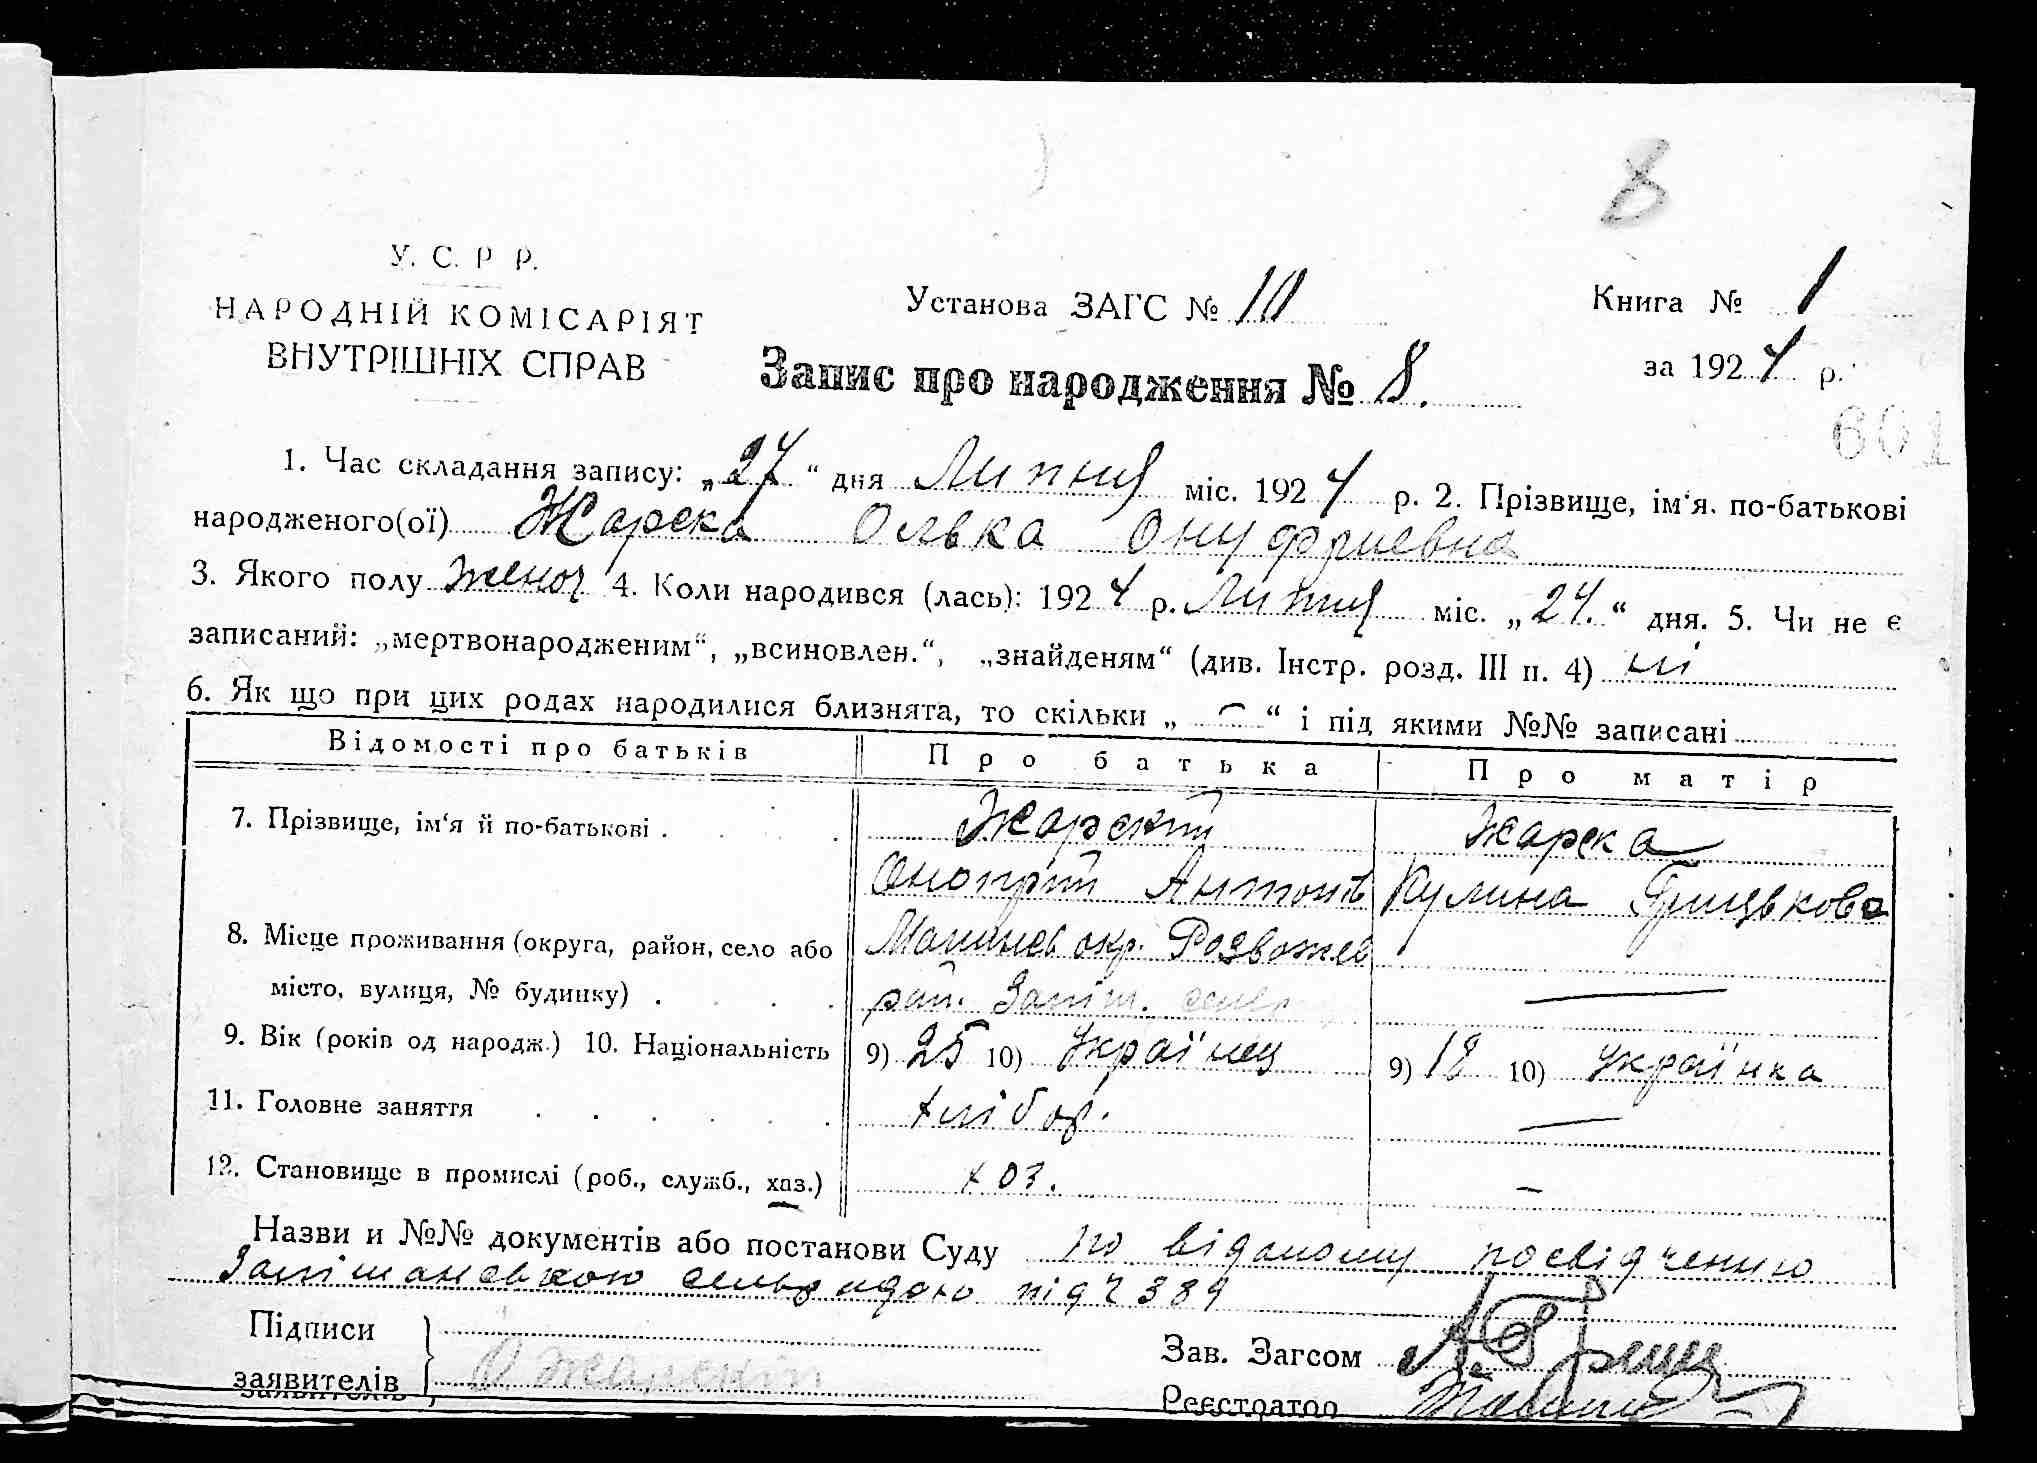 8
У. С. Р Р.
НАРОДНІЙ КОМІСАРІЯТ
ВНУТРІШНІХ СПРАВ
Установа ЗАГС № 10
Книга № 1
за 1924 р.
Запис про народження № 8.
601
1. Час складання запису: „27“ дня Липня міс. 1924 р. 2. Прізвище, ім‘я. по-батькові
народженого(ої) Жарська Олька Онуфриевна
3. Якого полу женоч 4. Коли народився (лась): 1924 р. Липня міс. „24.“ дня. 5. Чи не є
записаний: „мертвонародженим“, „всиновлен.“, „знайденям“ (див. Інстр. розд. III п. 4) ні
6. Як що при цих родах народилися близнята, то скільки „ — “ і під якими №№ записані
Відомості про батьків Про батька Про матір
7. Прізвище, ім‘я й по-батькові . Жарский Жарска
Онопрій Антонів Кулина Грицькова
8. Місце проживання (округа, район, село або Малинсь окр. Розважев
місто, вулиця, № будинку) . раи. Запіт. —
9. Вік (років од народж.) 10. Національність 9) 25 10) Українец 9) 18 10) Українка
11. Головне заняття хлібор. —
12. Становище в промислі (роб., служб., хаз.) хоз. —
Назви и №№ документів або постанови Суду по віданому посвідченню
сельрадою під ч 389
Підписи
заявителів О Жарский
Зав. Загсом
Реєстратор